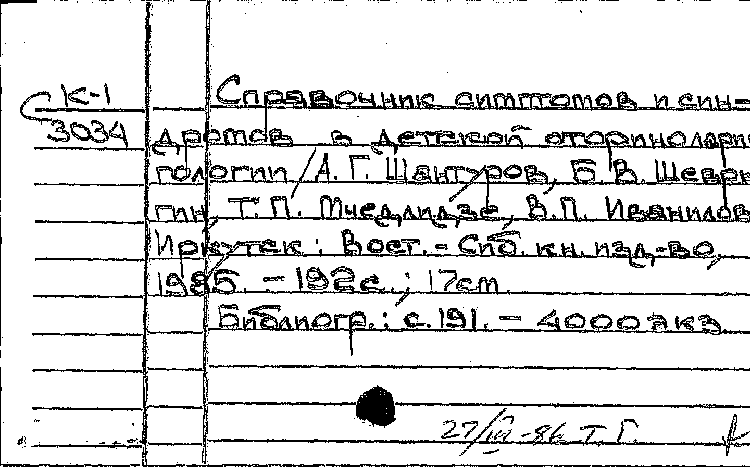 К-1
3034
Справочник симптомов и син-
дромов в детской оториноларин
гологии / А. Г. Шантуров, Б. В. Шевры
гин, Т. П. Мчедлидзе, В. П. Иванилов
Иркутск : Вост. - Сиб. кн. изд-во,
1985. - 192с.; 17см.
Библиогр.: с. 191. - 4000 экз
27/III -86 Т. Г.